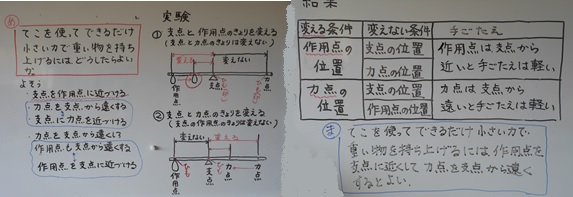 め
てこを使ってできるだけ
小さい力で重い物を持ち
上げるには、どうしたらよい
か。
よそう
・支点を作用点に近づける
・力点を支点から遠くする
・支点に力点を近づける
・力点を支点から遠くして
作用点も支点から遠くする
・作用点を支点に近づける
実験
① 支点と作用点のきょりを変える
(支点と力点のきょりは変えない)
変える
変えない
作用点
支点
力点
② 支点と力点のきょりを変える
(支点と作用点のきょりは変えない)
変えない
変える
作用点
支点
力点
力点
結果
変える条件 変えない条件 手ごたえ
作用点の位置 支点の位置 作用点は支点から
力点の位置 近いと手ごたえは軽い
力点の位置 支点の位置 力点は支点から
作用点の位置 遠いと手ごたえは軽い
ま
てこを使ってできるだけ小さい力で
重い物を持ち上げるには、作用点を
支点に近くして力点を支点から遠く
するとよい。